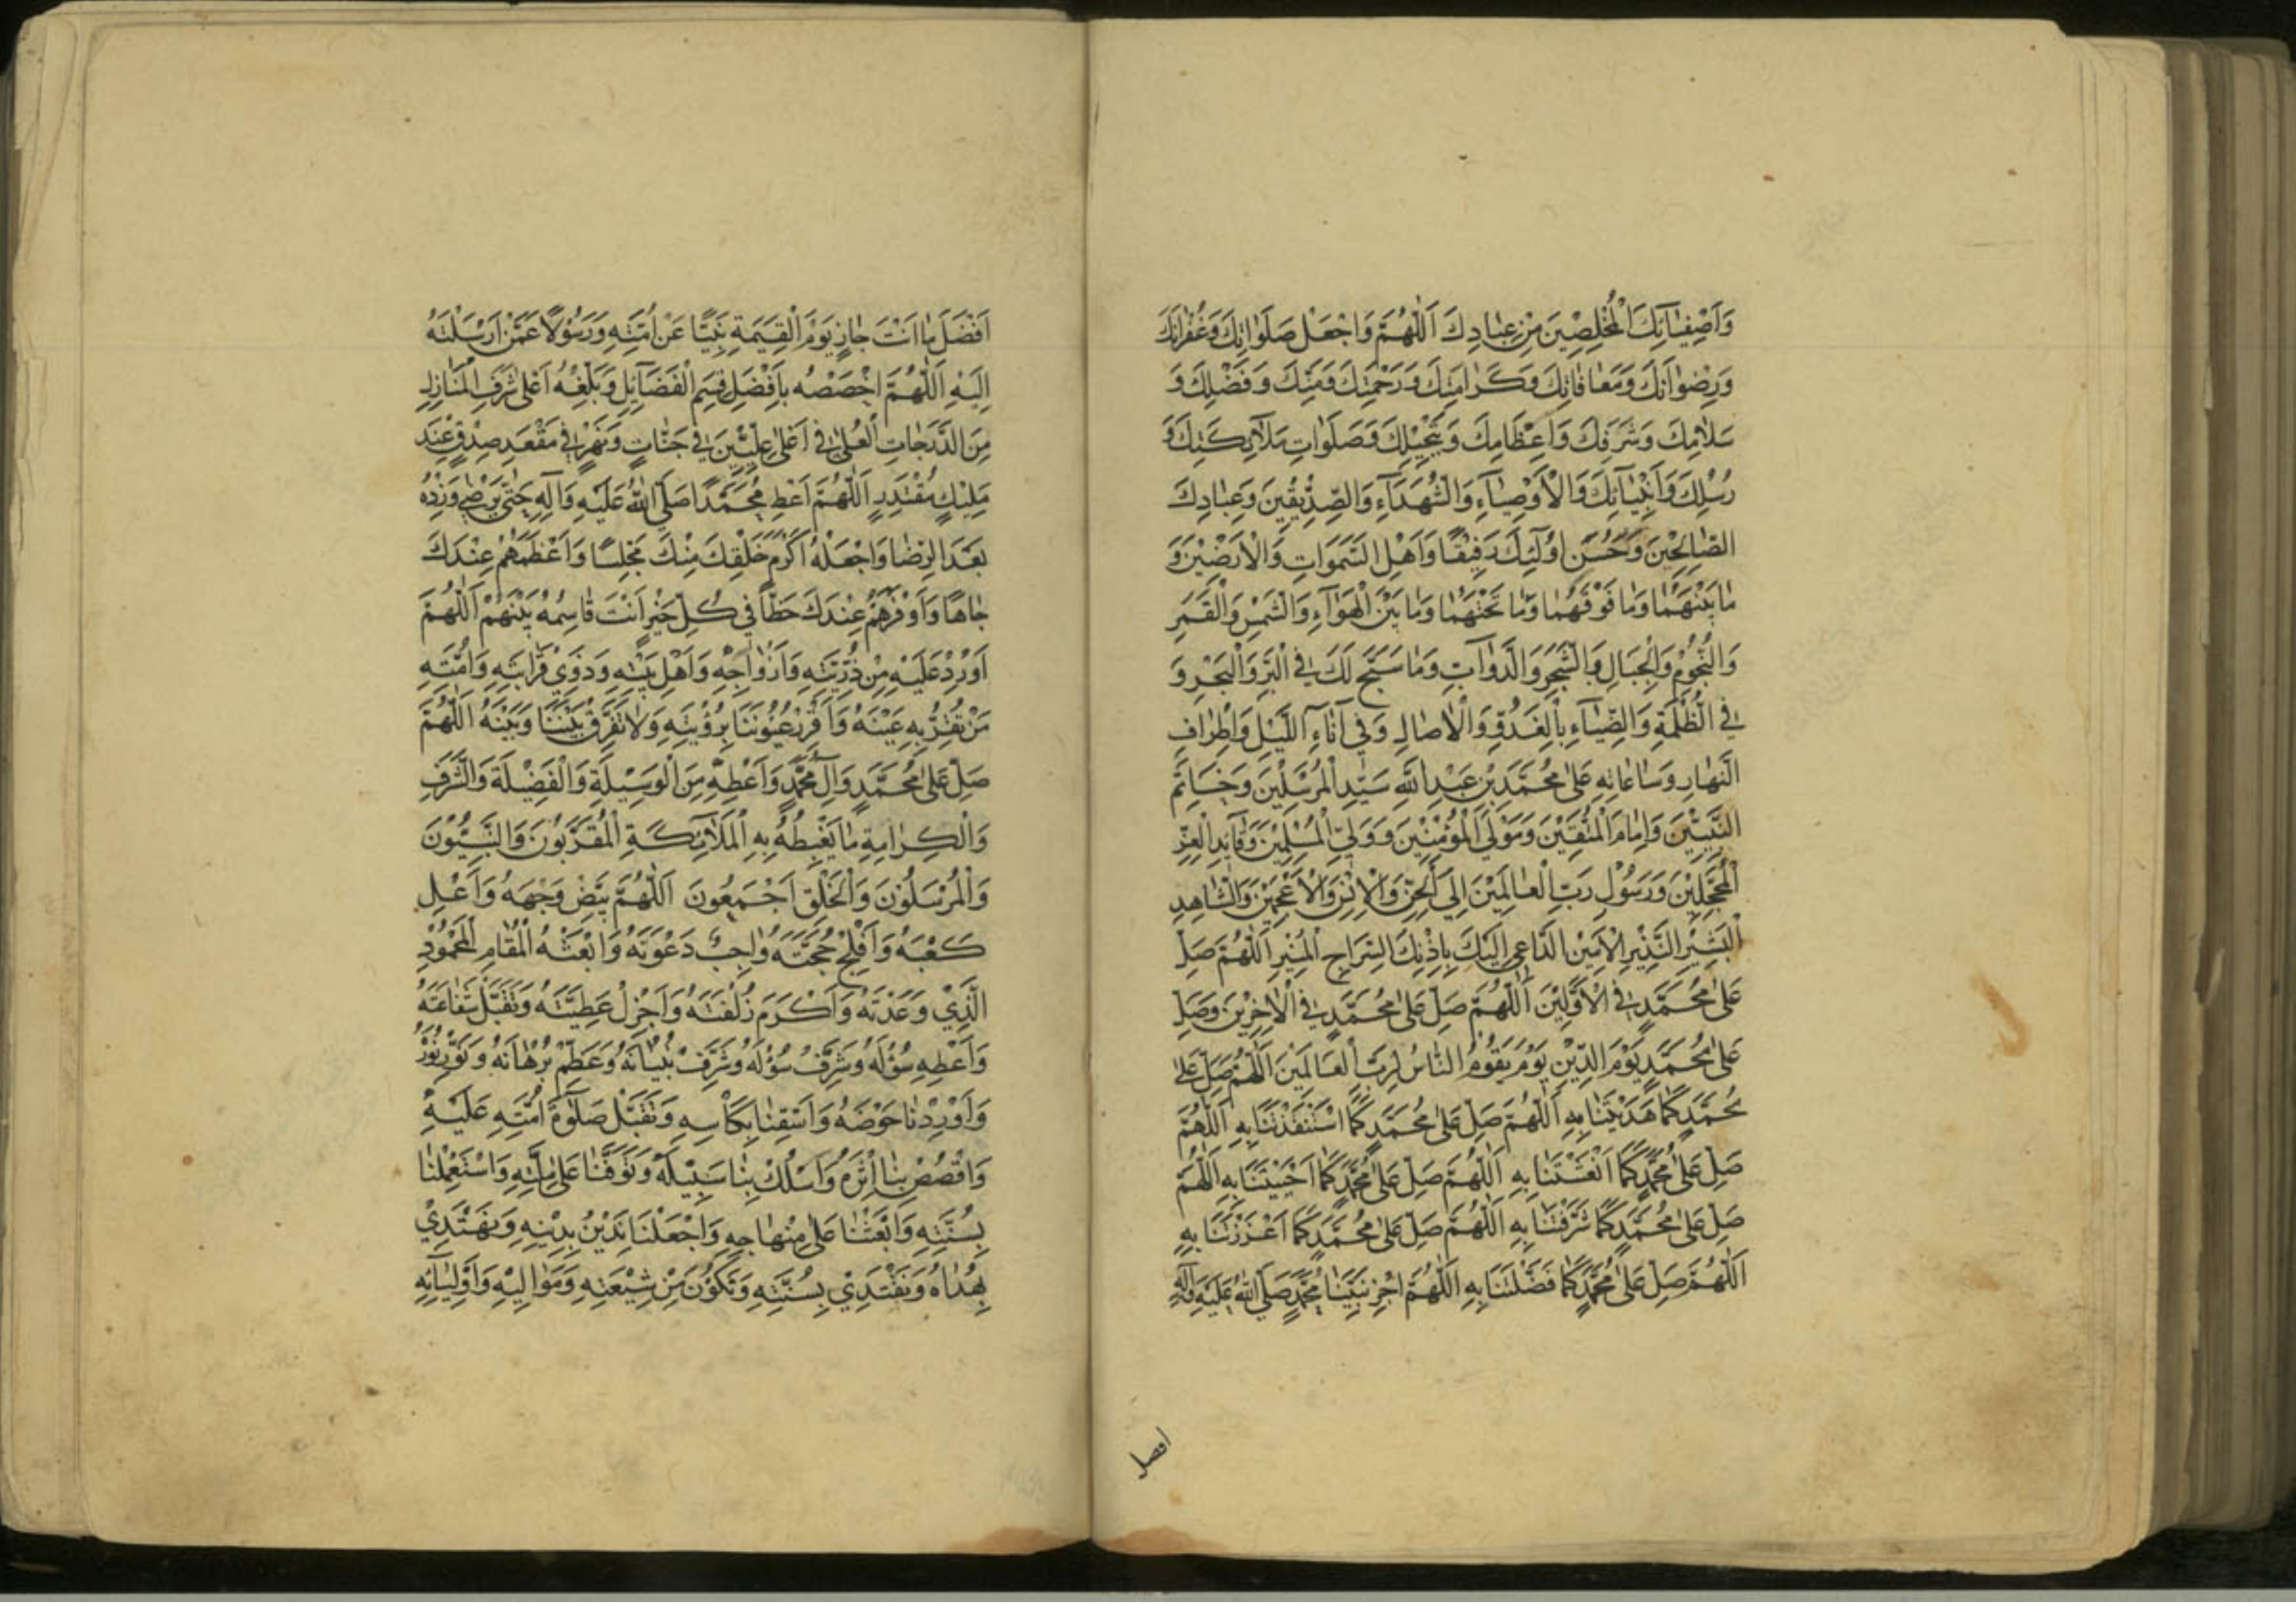 وَاَصْفِيَآئِكَ الْمُخْلِصِيْنَ مِنْ عِبَادِكَ اَللّٰهُمَّ وَاجْعَلْ صَلَوَاتِكَ وَغُفْرَانَكَ
وَرِضْوَانَكَ وَمَعَافَاتِكَ وَكَرَامَتِكَ وَرَحْمَتِكَ وَمَنِّكَ وَفَضْلِكَ وَ
سَلَامِكَ وَشَرَفِكَ وَاِعْظَامِكَ وَتَبْجِيْلِكَ وَصَلَوَاتِ مَلَآئِكَتِكَ وَ
رُسُلِكَ وَاَنْبِيَآئِكَ وَالْاَوْصِيَآءِ وَالشُّهَدَآءِ وَالصِّدِّيْقِيْنَ وَعِبَادِكَ
الصَّالِحِيْنَ وَحَسُنَ اُولٰئِكَ رَفِيْقًا وَاَهْلِ السَّمٰوَاتِ وَالْاَرَضِيْنَ وَ
مَا بَيْنَهُمَا وَمَا فَوْقَهُمَا وَمَا تَحْتَهُمَا وَمَا بَيْنَ الْهَوَآءِ وَالشَّمْسِ وَالْقَمَرِ
وَالنُّجُوْمِ وَالْجِبَالِ وَالشَّجَرِ وَالدَّوَآبِّ وَمَا سَبَّحَ لَكَ فِي الْبَرِّ وَالْبَحْرِ وَ
فِي الظُّلْمَةِ وَالضِّيَآءِ بِالْغُدُوِّ وَالْاٰصَالِ وَفِي اٰنَآءِ اللَّيْلِ وَاَطْرَافِ
النَّهَارِ وَسَاعَاتِهِ عَلٰى مُحَمَّدِ بْنِ عَبْدِ اللّٰهِ سَيِّدِ الْمُرْسَلِيْنَ وَخَاتَمِ
النَّبِيِّيْنَ وَاِمَامِ الْمُتَّقِيْنَ وَمَوْلَى الْمُؤْمِنِيْنَ وَوَلِيِّ الْمُسْلِمِيْنَ وَقَآئِدِ الْغُرِّ
الْمُحَجَّلِيْنَ وَرَسُوْلِ رَبِّ الْعَالَمِيْنَ اِلَى الْجِنِّ وَالْاِنْسِ وَالْاَعْجَمِيْنَ وَالشَّاهِدِ
الْبَشِيْرِ النَّذِيْرِ الْاَمِيْنِ الدَّاعِي اِلَيْكَ بِاِذْنِكَ السِّرَاجِ الْمُنِيْرِ اَللّٰهُمَّ صَلِّ
عَلٰى مُحَمَّدٍ فِي الْاَوَّلِيْنَ اَللّٰهُمَّ صَلِّ عَلٰى مُحَمَّدٍ فِي الْاٰخِرِيْنَ وَصَلِّ
عَلٰى مُحَمَّدٍ يَوْمَ الدِّيْنِ يَوْمَ يَقُوْمُ النَّاسُ لِرَبِّ الْعَالَمِيْنَ اَللّٰهُمَّ صَلِّ عَلٰى
مُحَمَّدٍ كَمَا هَدَيْتَنَا بِهِ اَللّٰهُمَّ صَلِّ عَلٰى مُحَمَّدٍ كَمَا اسْتَنْقَذْتَنَا بِهِ اَللّٰهُمَّ
صَلِّ عَلٰى مُحَمَّدٍ كَمَا اَنْعَشْتَنَا بِهِ اَللّٰهُمَّ صَلِّ عَلٰى مُحَمَّدٍ كَمَا اَحْيَيْتَنَا بِهِ اَللّٰهُمَّ
صَلِّ عَلٰى مُحَمَّدٍ كَمَا شَرَّفْتَنَا بِهِ اَللّٰهُمَّ صَلِّ عَلٰى مُحَمَّدٍ كَمَا اَعْزَزْتَنَا بِهِ
اَللّٰهُمَّ صَلِّ عَلٰى مُحَمَّدٍ كَمَا فَضَّلْتَنَا بِهِ اَللّٰهُمَّ اجْزِ نَبِيَّنَا مُحَمَّدٍ صَلَّى اللّٰهُ عَلَيْهِ وَآلِهِ
افضل
اَفْضَلَ مَا اَنْتَ جَازٍ يَوْمَ الْقِيٰمَةِ نَبِيًّا عَنْ اُمَّتِهِ وَرَسُوْلًا عَمَّنْ اَرْسَلْتَهُ
اِلَيْهِ اَللّٰهُمَّ اخْصُصْهُ بِاَفْضَلِ قِسَمِ الْفَضَآئِلِ وَبَلِّغْهُ اَعْلٰى شَرَفِ الْمَنَازِلِ
مِنَ الدَّرَجَاتِ الْعُلٰى فِي اَعْلٰى عِلِّيِّيْنَ فِي جَنَّاتٍ وَنَهَرٍ فِي مَقْعَدِ صِدْقٍ عِنْدَ
مَلِيْكٍ مُقْتَدِرٍ اَللّٰهُمَّ اَعْطِ مُحَمَّدًا صَلَّى اللّٰهُ عَلَيْهِ وَآلِهِ حَتّٰى يَرْضٰى وَزِدْهُ
بَعْدَ الرِّضَا وَاجْعَلْهُ اَكْرَمَ خَلْقِكَ مِنْكَ مَجْلِسًا وَاَعْظَمَهُمْ عِنْدَكَ
جَاهًا وَاَوْفَرَهُمْ عِنْدَكَ حَظًّا فِي كُلِّ خَيْرٍ اَنْتَ قَاسِمُهُ بَيْنَهُمْ اَللّٰهُمَّ
اَوْرِدْ عَلَيْهِ مِنْ ذُرِّيَّتِهِ وَاَزْوَاجِهِ وَاَهْلِ بَيْتِهِ وَذَوِيْ قَرَابَتِهِ وَاُمَّتِهِ
مَنْ تُقِرُّ بِهِ عَيْنَهُ وَاَقْرِرْ عُيُوْنَنَا بِرُؤْيَتِهِ وَلَا تُفَرِّقْ بَيْنَنَا وَبَيْنَهُ اَللّٰهُمَّ
صَلِّ عَلٰى مُحَمَّدٍ وَآلِ مُحَمَّدٍ وَاَعْطِهِ مِنَ الْوَسِيْلَةِ وَالْفَضِيْلَةِ وَالشَّرَفِ
وَالْكِرَامَةِ مَا يَغْبِطُهُ بِهِ الْمَلَآئِكَةِ الْمُقَرَّبُوْنَ وَالنَّبِيُّوْنَ
وَالْمُرْسَلُوْنَ وَالْخَلْقُ اَجْمَعُوْنَ اَللّٰهُمَّ بَيِّضْ وَجْهَهُ وَاَعْلِ
كَعْبَهُ وَاَفْلِجْ حُجَّتَهُ وَاَجِبْ دَعْوَتَهُ وَابْعَثْهُ الْمَقَامَ الْمَحْمُوْدِ
الَّذِيْ وَعَدْتَهُ وَاَكْرِمْ زُلْفَتَهُ وَاَجْزِلْ عَطِيَّتَهُ وَتَقَبَّلْ شَفَاعَتَهُ
وَاَعْطِهِ سُؤْلَهُ وَشَرِّفْ سُؤْلَهُ وَشَرِّفْ بُنْيَانَهُ وَعَظِّمْ بُرْهَانَهُ وَنَوِّرْ نُوْرَهُ
وَاَوْرِدْنَا حَوْضَهُ وَاَسْقِنَا بِكَاْسِهِ وَتَقَبَّلْ صَلٰوةَ اُمَّتِهِ عَلَيْهِ
وَاقْصُصْ بِنَا اَثَرَهُ وَاَسْلُكْ بِنَا سَبِيْلَهُ وَتَوَفَّنَا عَلٰى مِلَّتِهِ وَاسْتَعْمِلْنَا
بِسُنَّتِهِ وَابْعَثْنَا عَلٰى مِنْهَاجِهِ وَاجْعَلْنَا نَدِيْنُ بِدِيْنِهِ وَنَهْتَدِيْ
بِهُدَاهُ وَنَقْتَدِيْ بِسُنَّتِهِ وَنَكُوْنَ مِنْ شِيْعَتِهِ وَمَوَالِيْهِ وَاَوْلِيَآئِهِ